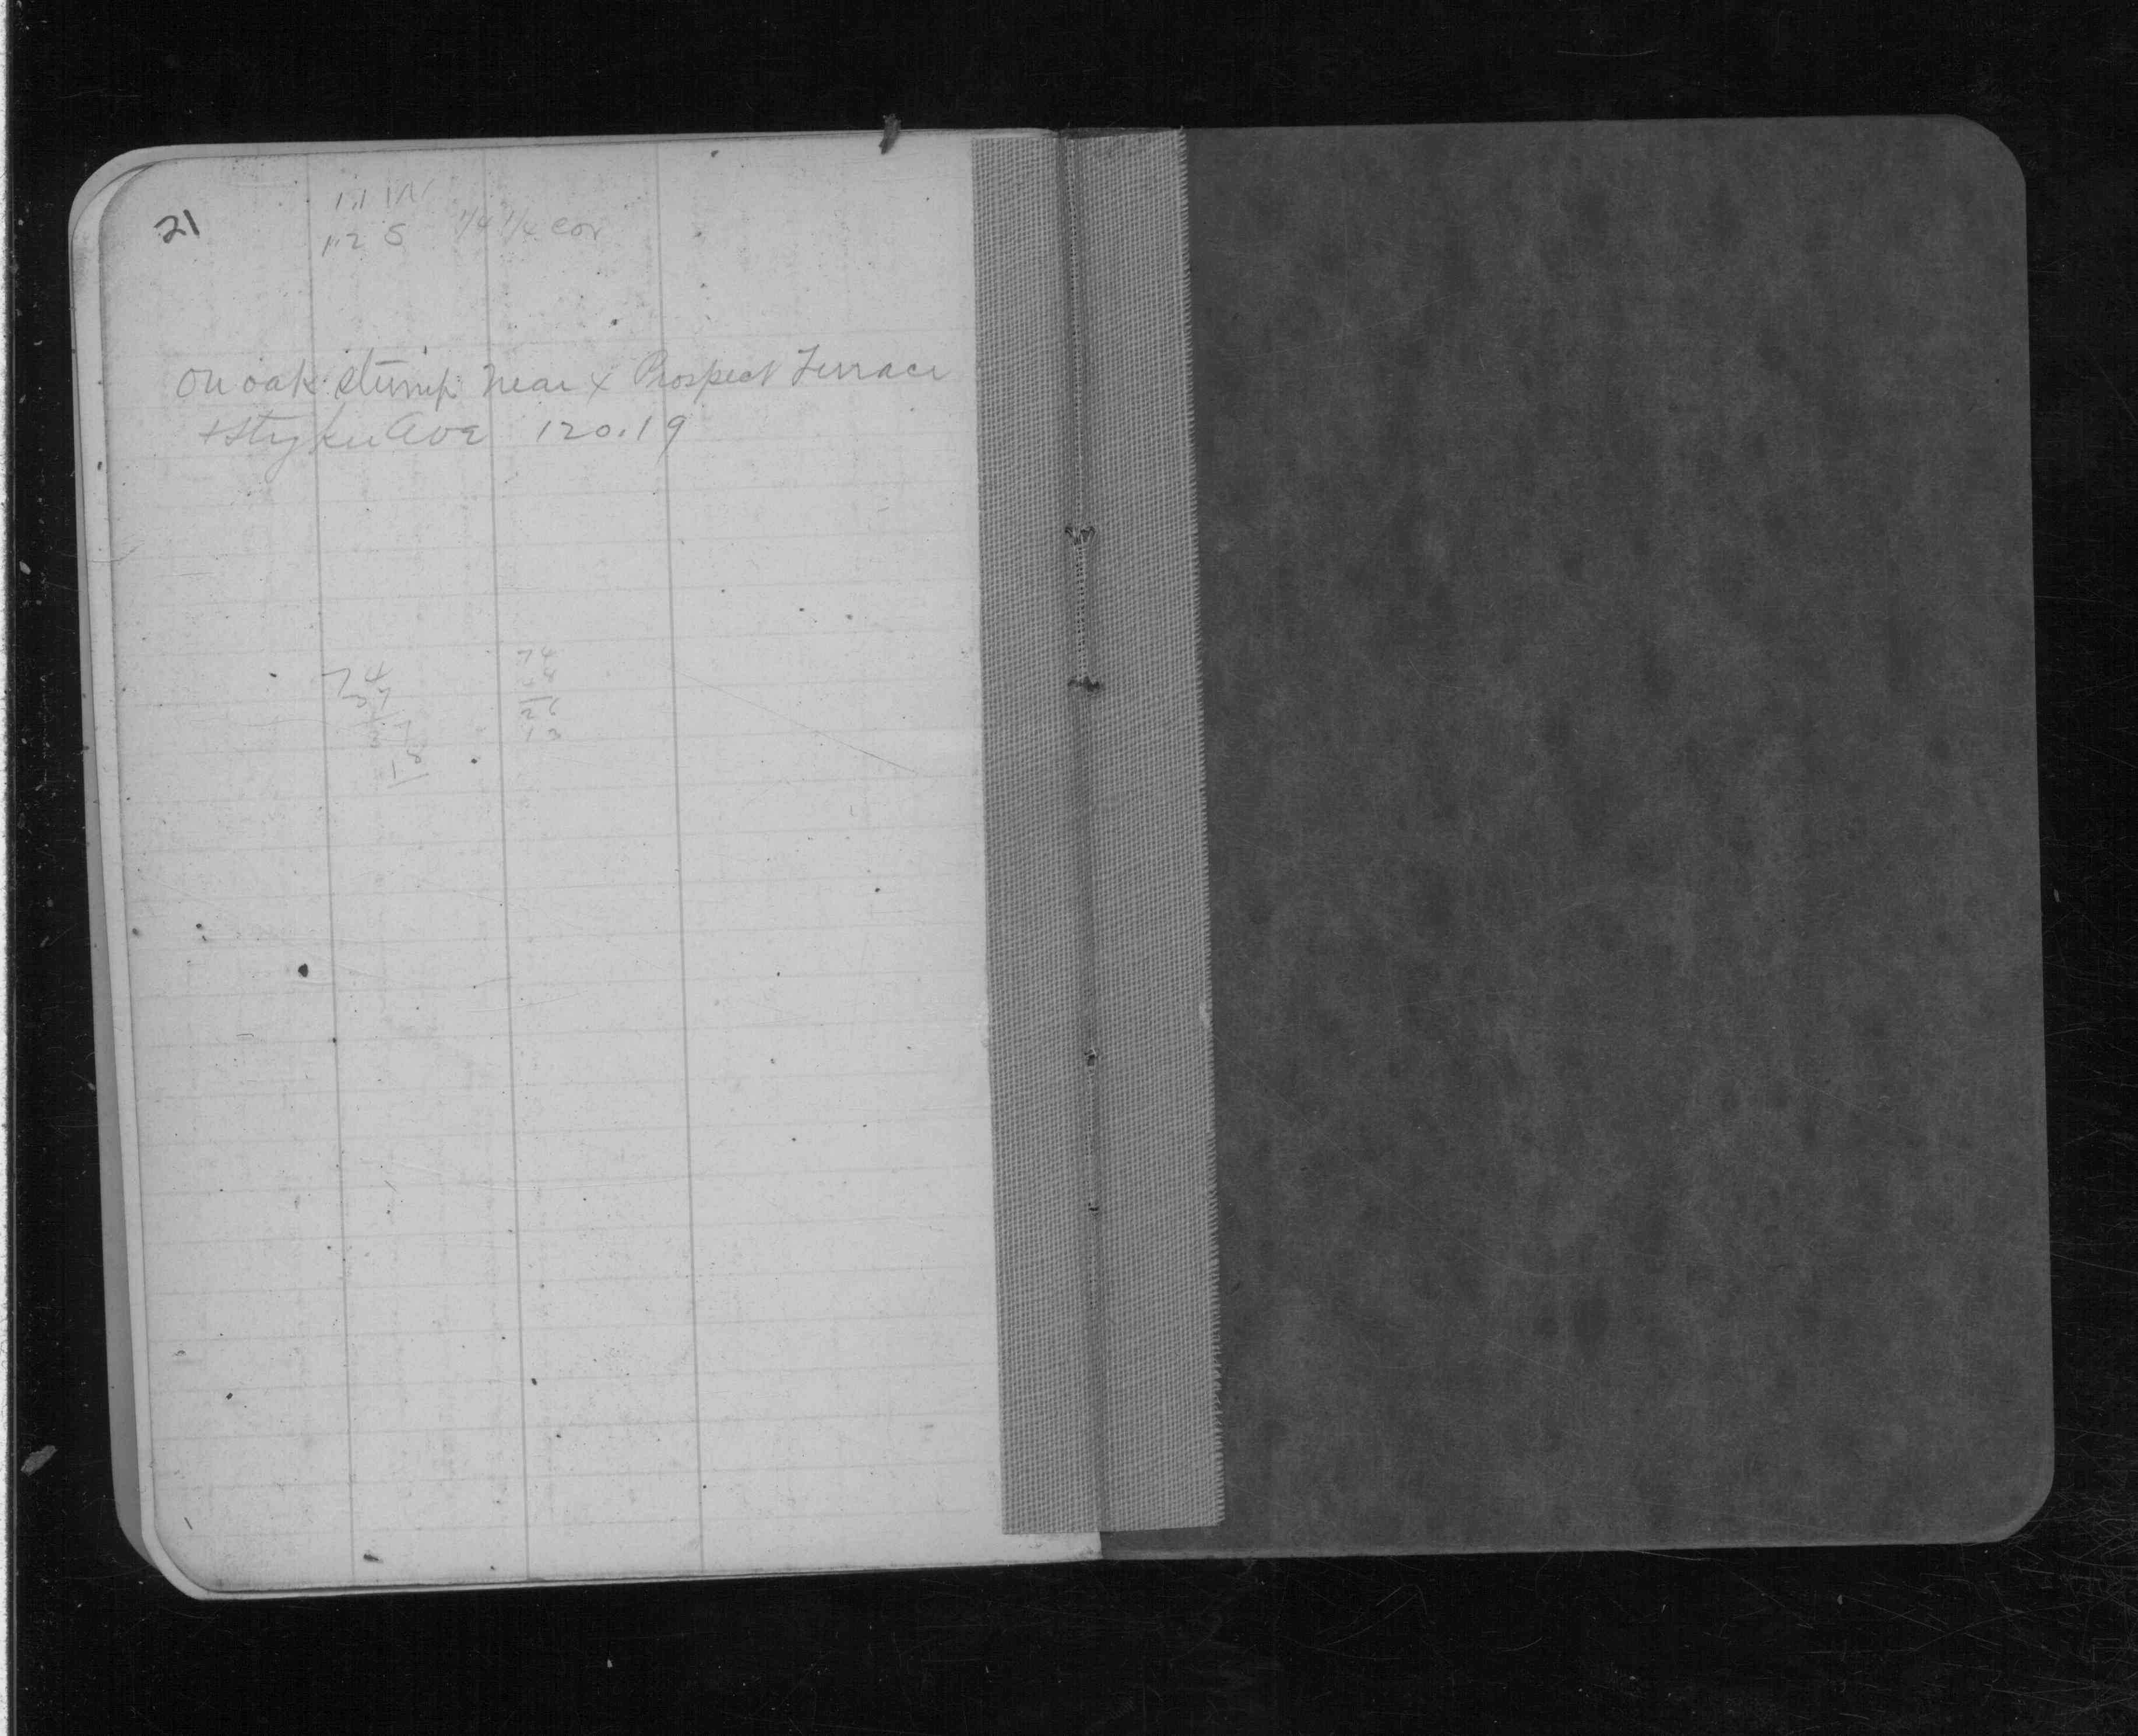 21
1.1 W
1.2 S 1/4 1/4 cor
on oak stump near x Prospect Terrace
+ Stryker Ave 120.19
74
37
37
18
74
26
13